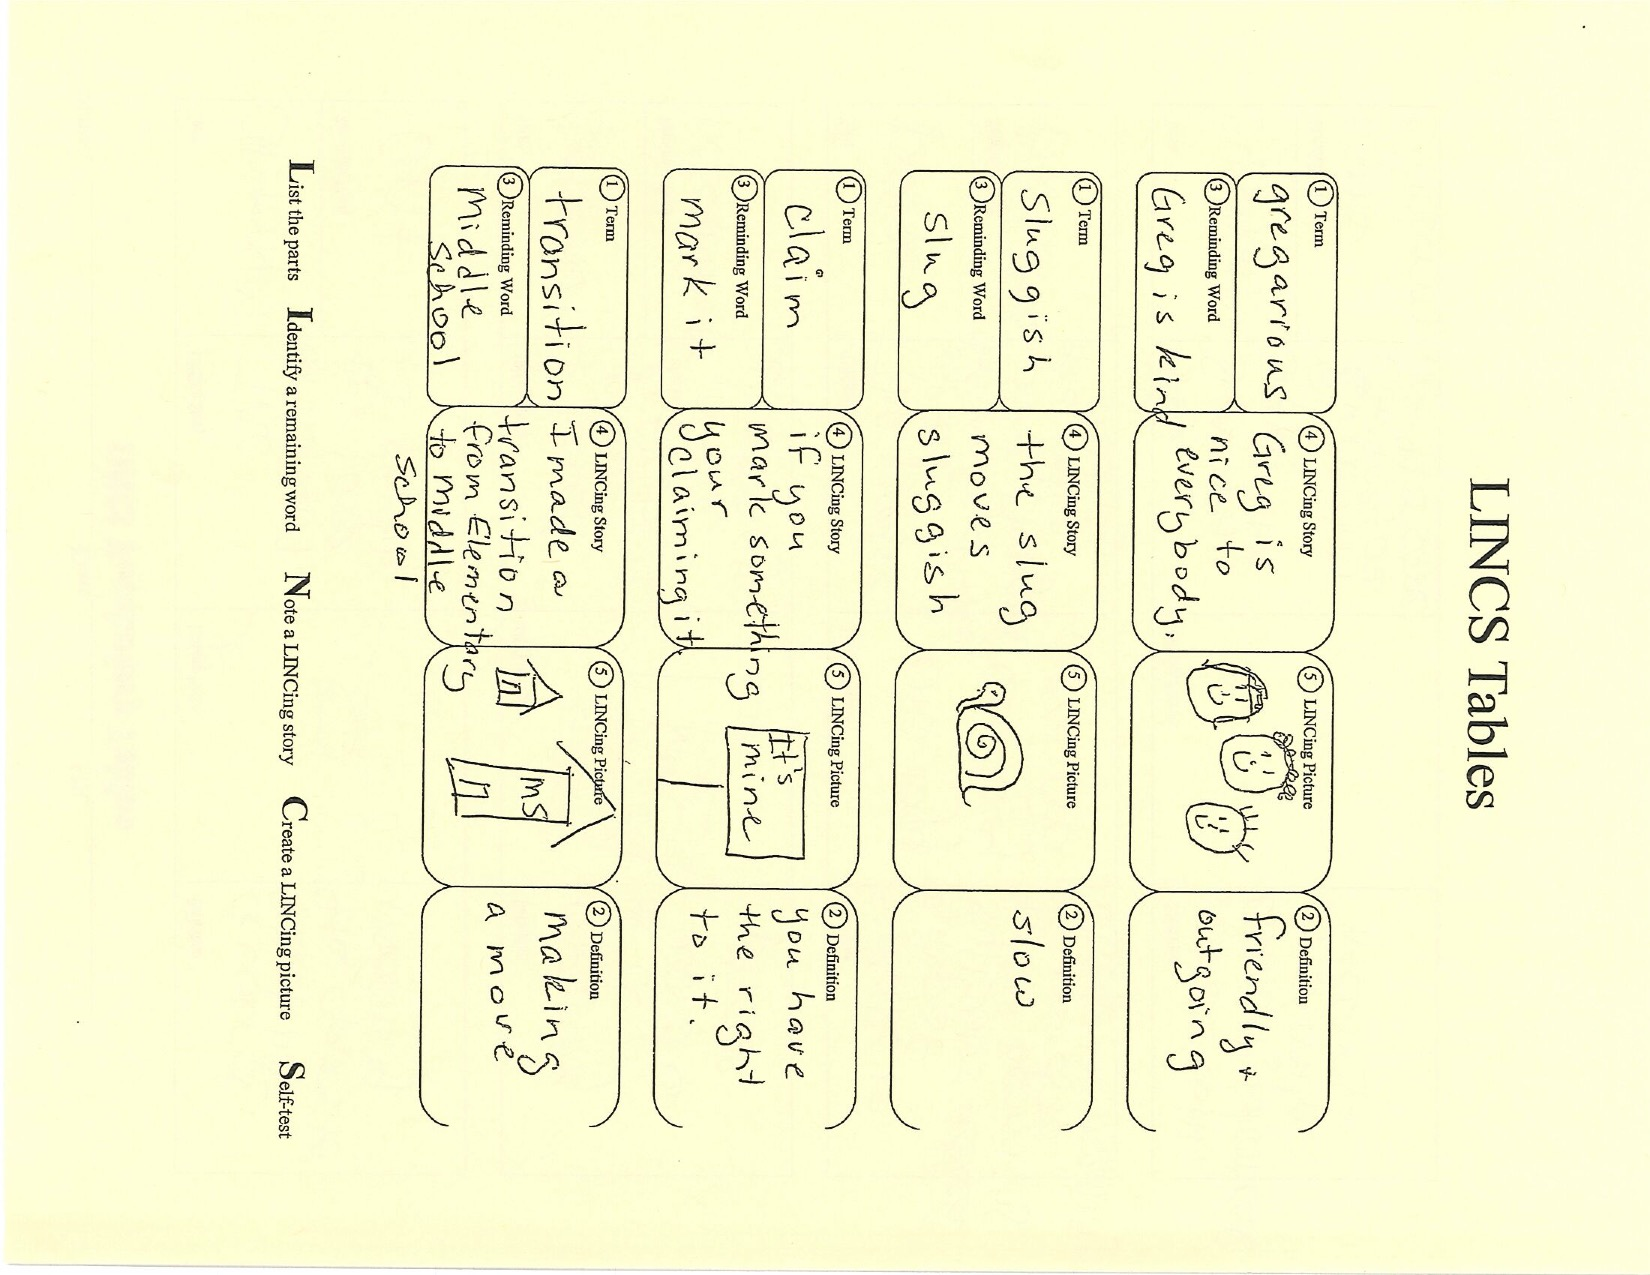 LINCS Tables
① Term
gregarious
③ Reminding Word
Greg is kind
④ LINCing Story
Greg is
nice to
everybody.
⑤ LINCing Picture
② Definition
friendly +
outgoing
① Term
Sluggish
③ Reminding Word
slug
④ LINCing Story
the slug
moves
sluggish
⑤ LINCing Picture
② Definition
slow
① Term
claim
③ Reminding Word
mark it
④ LINCing Story
if you
mark something
your
claiming it
⑤ LINCing Picture
It's
mine
② Definition
you have
the right
to it.
① Term
transition
③ Reminding Word
middle
school
④ LINCing Story
I made a
transition
from Elementary
to middle
school
⑤ LINCing Picture
MS
② Definition
making
a move
List the parts Identify a remaining word Note a LINCing story Create a LINCing picture Self-test